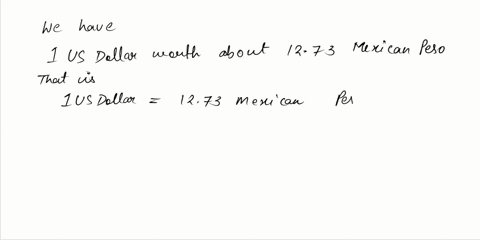 We have
1 US Dollar worth about 12.73 Mexican Peso
That is
1 US Dollar = 12.73 Mexican Pes